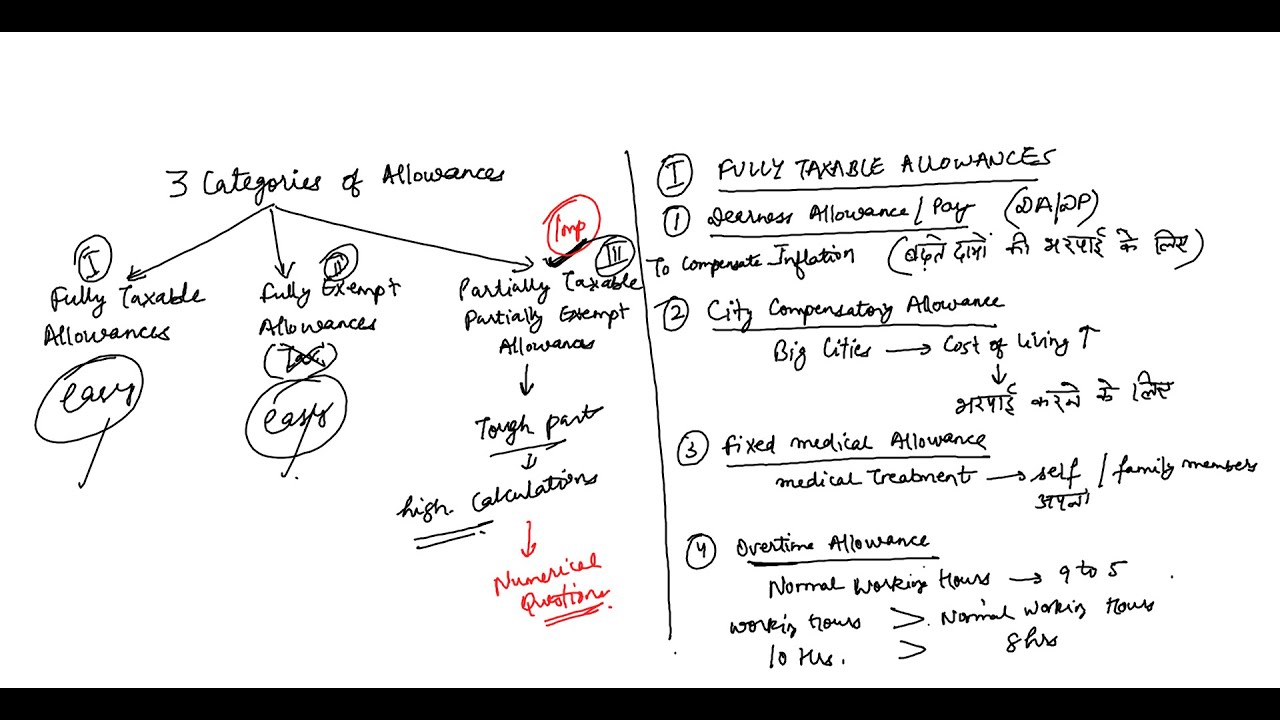 3 Categories of Allowances
I
Fully Taxable
Allowances
easy
II
Fully Exempt
Allowances
(Tax)
easy
Imp
III
Partially Taxable
Partially Exempt
Allowances
Tough part
high Calculations
Numerical
Questions
I FULLY TAXABLE ALLOWANCES
1 Dearness Allowance / Pay (DA/DP)
To Compensate Inflation (बढ़ते दामों की भरपाई के लिए)
2 City Compensatory Allowance
Big Cities → Cost of living ↑
भरपाई करने के लिए
3 Fixed medical Allowance
medical Treatment → self / family members
अपना
4 Overtime Allowance
Normal Working Hours → 9 to 5
Working Hours > Normal Working Hours
10 Hrs. > 8 hrs